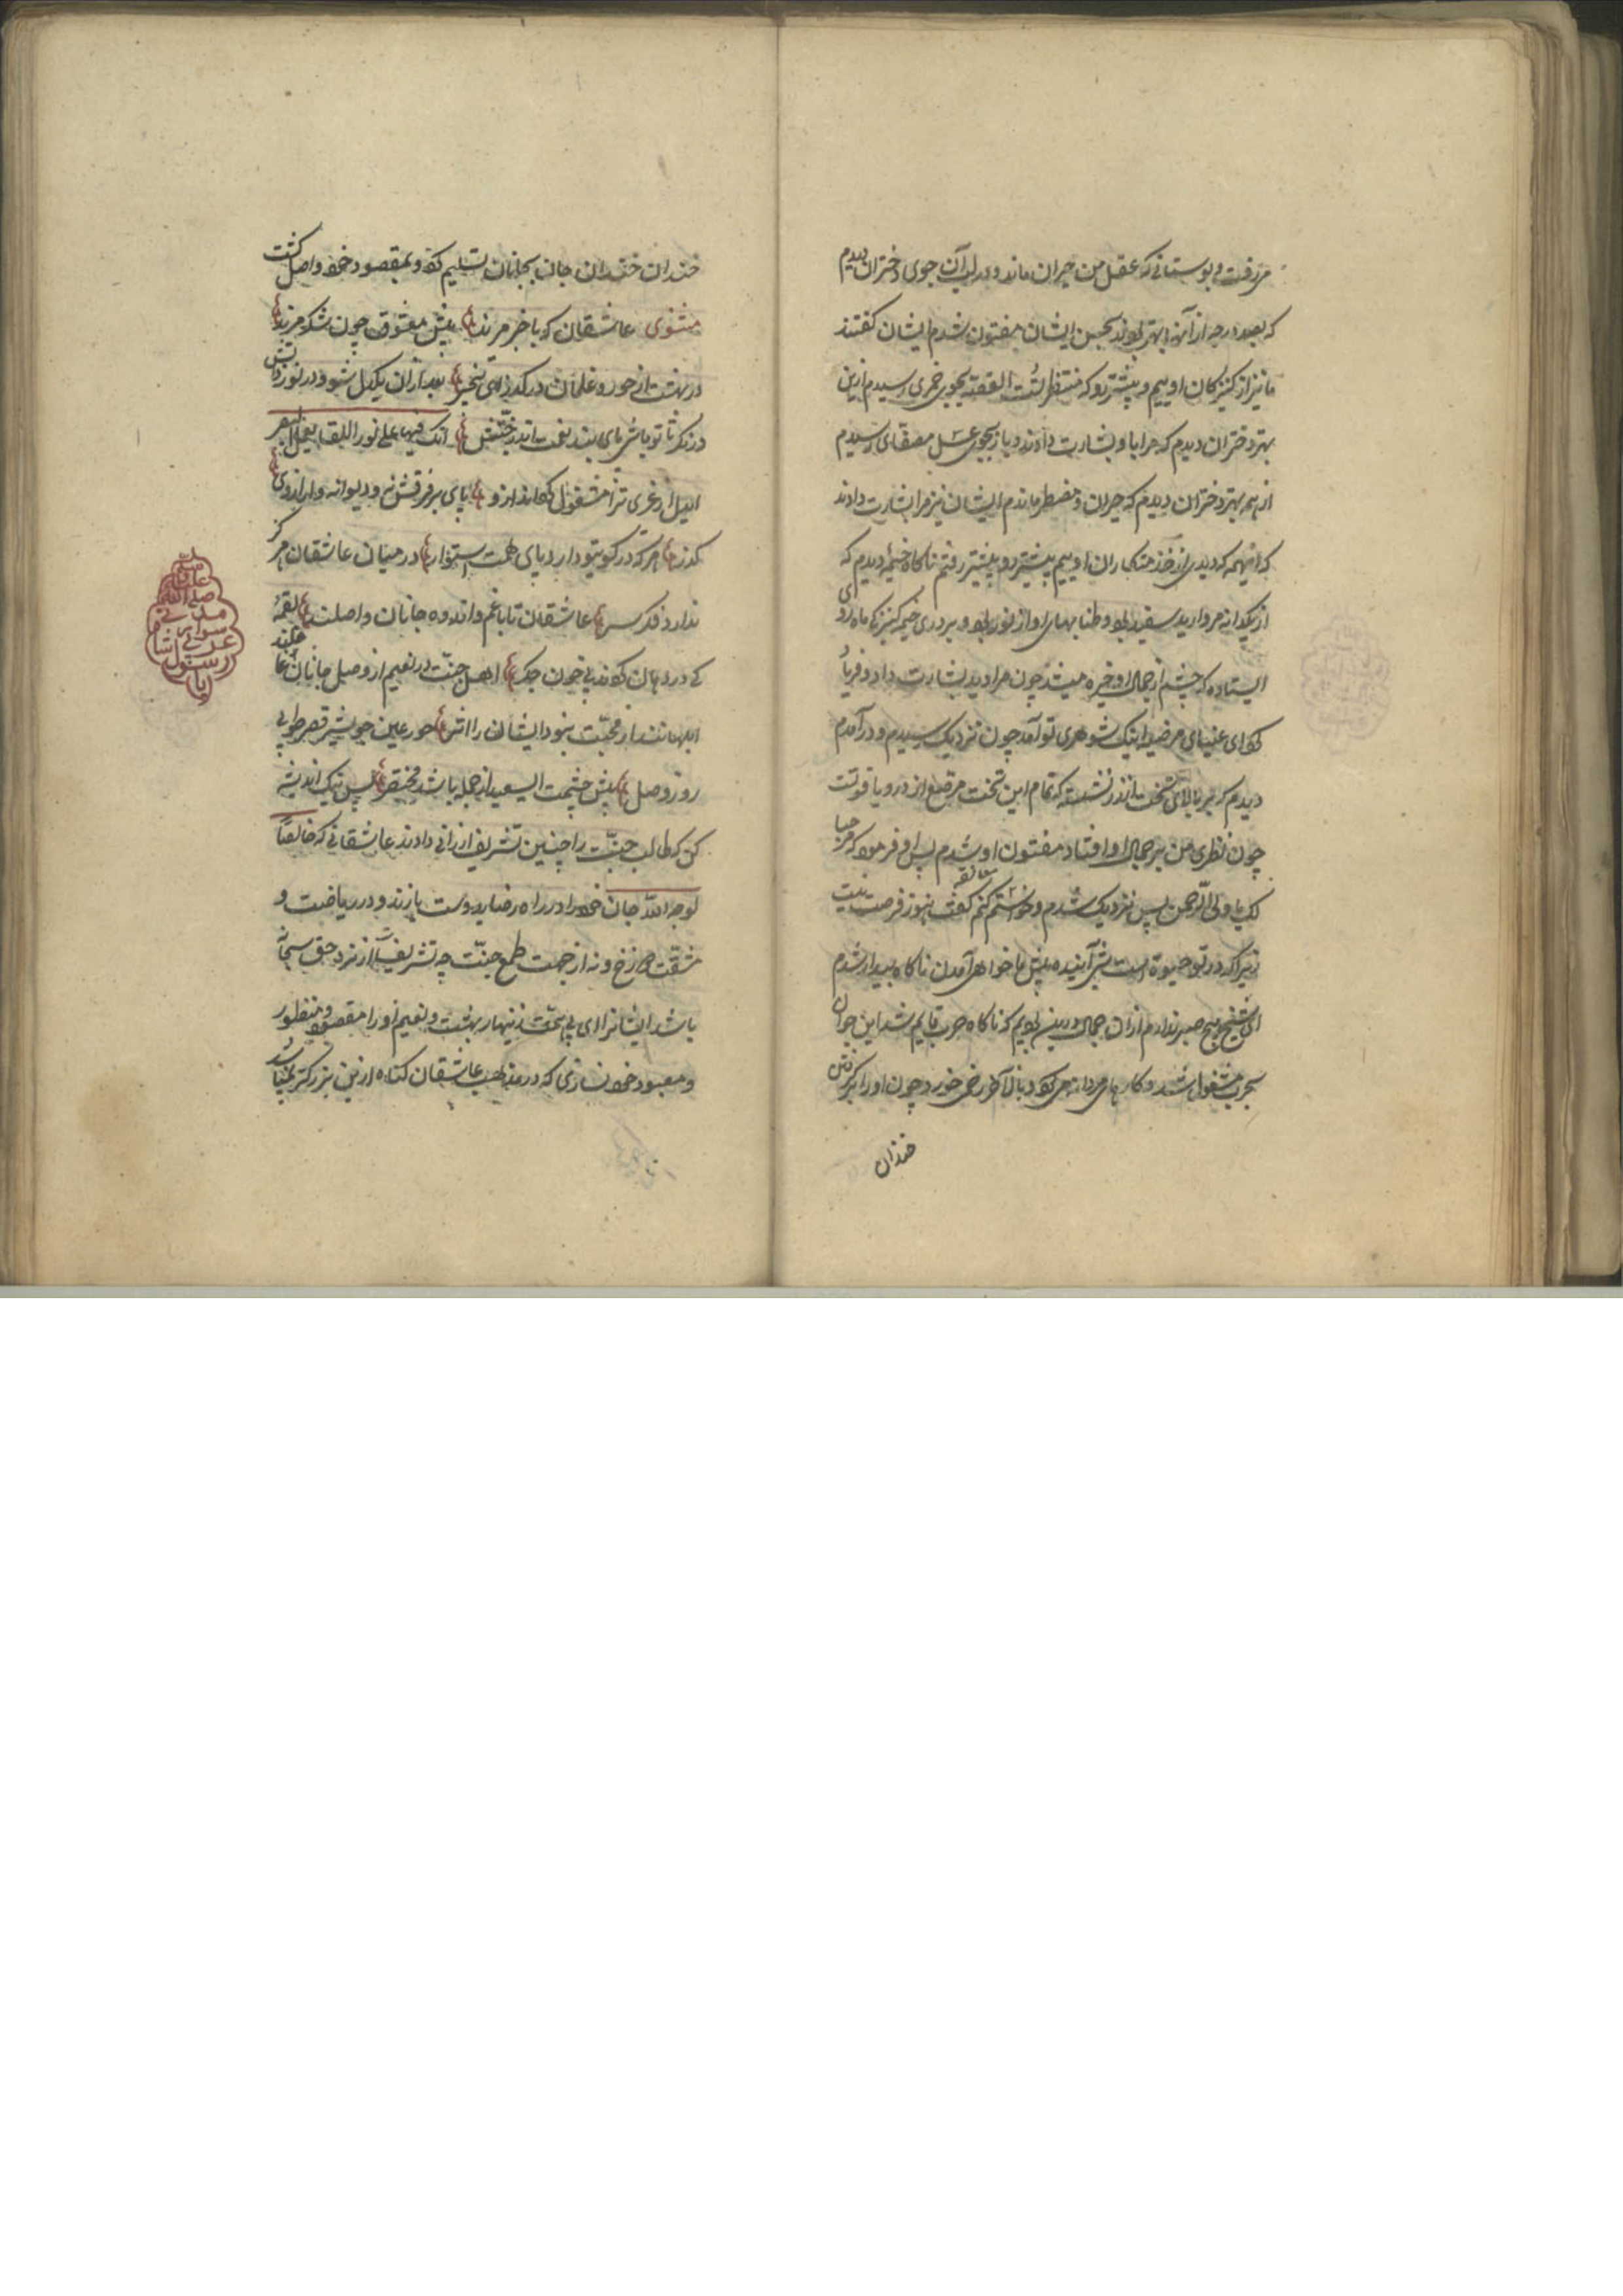 می رفت و بوستانی که عقل من حیران ماند و بر لب آن جوی دختران دیدم
که بصد درجه از آنها بهتر بودند بحسن ایشان مفتون شدم ایشان گفتند
ما نیز از کنیزکان اوییم و پیشتر رو که منتظر تست القصه بجوی خمری رسیدم ازین
بهتر دختران دیدم که مرا باو بشارت دادند و باز بجوی عسل مصفای رسیدم
از همه بهتر دختران دیدم که حیران و مضطر ماندم ایشان نیز مرا بشارت دادند
که اینهمه که دیدی از خدمتکاران اوییم پیشتر رو پیشتر رفتم ناکاه خیمه دیدم که
از یکدانه مروارید سفید بود و طنابهای او از نور بود و بر در خیمه کنیزکی ماه روی
ایستاده که چشم از جمال او خیره میشد چون مرا دید بشارت داد و فریاد
کرد ای عینای مرضیه اینک شوهری تو آمد چون نزدیک رسیدم و درآمدم
دیدم که بر بالای تخت زر نشسته که تمام این تخت مرصع از در و یاقوتست
چون نظری من بر جمال او افتاد مفتون او شدم پس او فرمود که مرحبا
لک یا ولی الرحمن پس نزدیک شدم و خواستم معانقه کنم گفت هنوز فرصت نیست
زیرا که در تو حیوة است شب آینده پیش ما خواهی آمدن ناکاه بیدار شدم
ای شیخ هیچ صبر ندارم ازان جمال درین بودیم که ناکاه حرب قایم شد این جوان
بحرب مشغول شد و کارهای مردانه می کرد بالآخر زخمی خورد و چون او را برکرفتن
خندان
خندان خندان جان بجانان تسلیم کرد و بمقصود خود واصل گشت
مثنوی عاشقان کو با خبر مرند پیش معشوق چون شکر مرند
در بهشت از حور و غلمان درکذر ای بیخبر بعد ازان یکدل شو و در نور ذاتش
درنکر تا تو باشی پای بند نفت اندر جنتش انک فیها علی نور اللقا یعمل البصر
ای پای بر فرقش نه و دیوانه وار از وی
کذر هر که در کویتو دارد پای همت استوار در میان عاشقان هرکز
ندارد فکر سر عاشقان تا با غم و اندوه جانان واصلند لقمه
کی در دهان کردند بی خون جکر اهل جنت در نعیم از وصل جانان غافلند
ابلهانند از محبت نبود ایشان را اثر حور عین جوی شیر قصر طوبی
روز وصل پیش چشمت السعید از جمله باشد مختصر پس نیک اندیشه
کن که طالب جنت را چنین تشریف ارزانی دادند عاشقانی که خالصًا
لوجه الله جان خود را در راه رضای دوست بازند و در ریاضت و
مشقت دوزخ و نه از جهت طمع جنت چه تشریفها از نزد حق سبحانه
باشد ایشانرا ای بی همت زینهار بهشت و نعیم او را مقصود و منظور
و معبود خود نسازی که در مذهب عاشقان کناه ازین بزرکتر نباشد